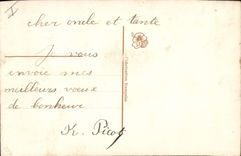 cher oncle et tante
Je vous
envoie mes
meilleurs vœux
de bonheur